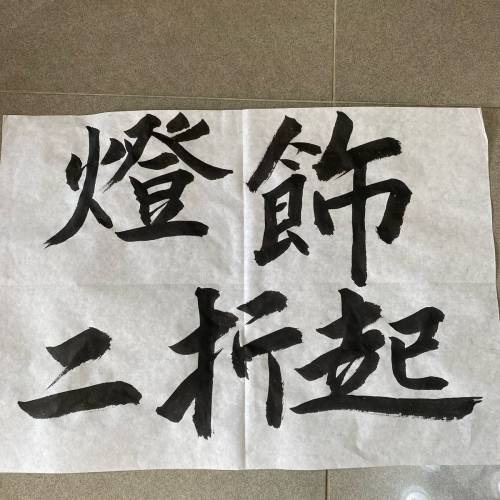 燈飾
二折起